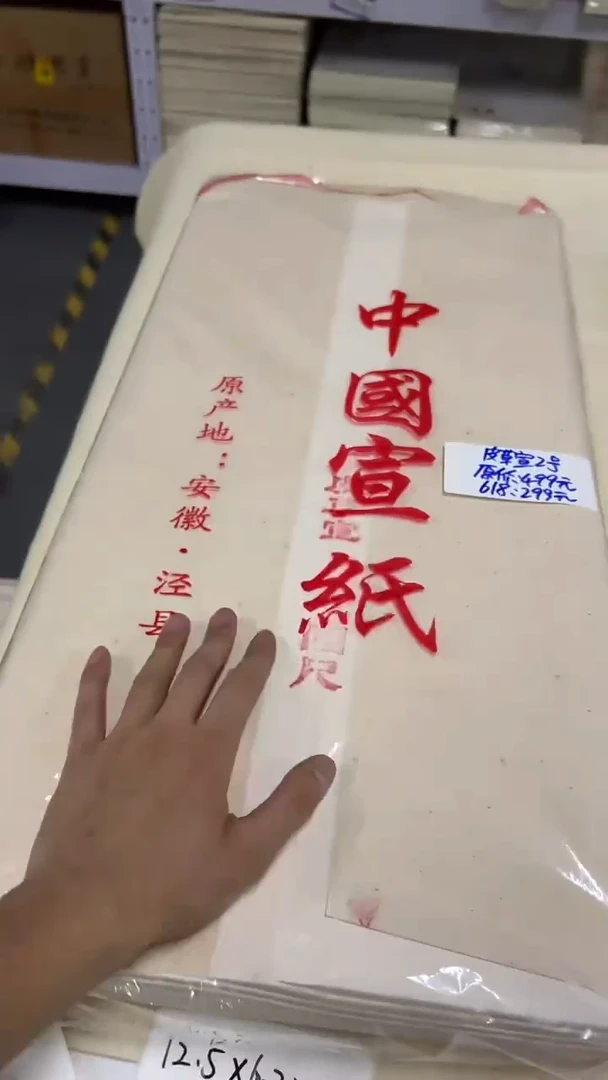 中國宣紙
原产地：安徽·泾县
皮草宣2号
原价：499元
618：299元
四尺
12.5×6.2